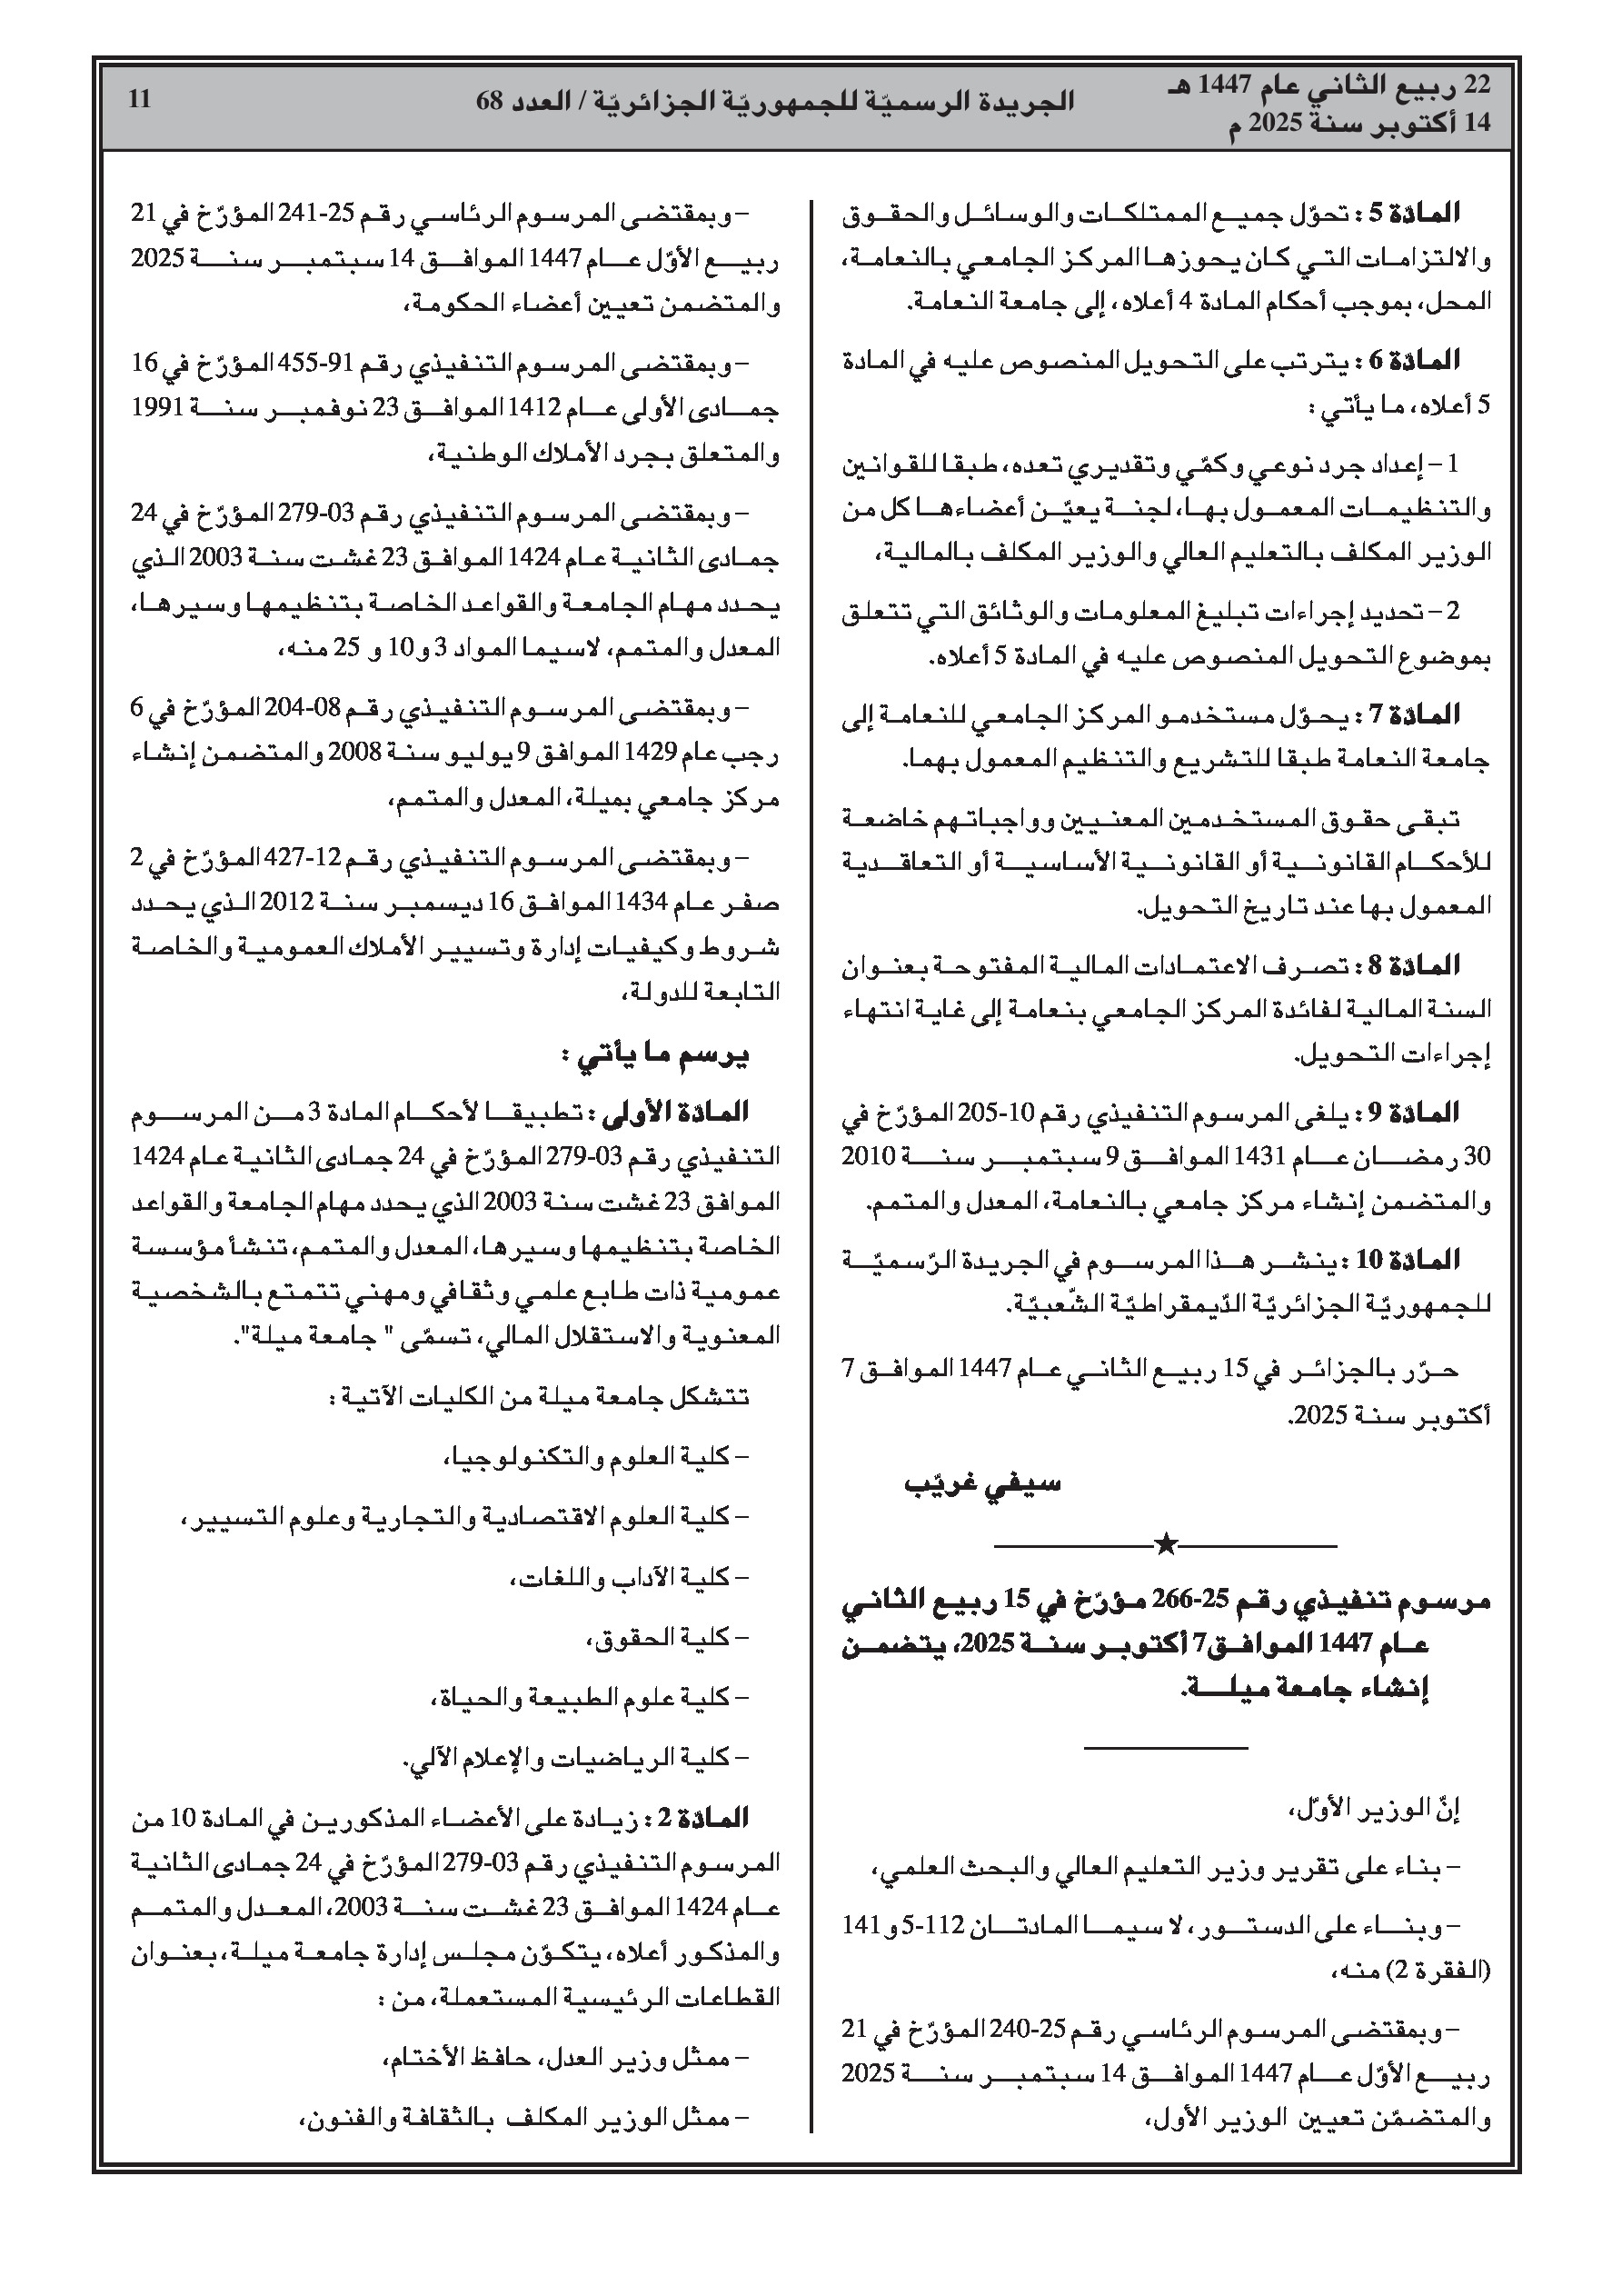 22 ربيع الثاني عام 1447 هـ
14 أكتوبر سنة 2025 م
الجريدة الرسميّة للجمهوريّة الجزائريّة / العدد 68
11
المادّة 5 : تحوّل جميع الممتلكات والوسائل والحقوق
والالتزامات التي كان يحوزها المركز الجامعي بالنعامة،
المحل، بموجب أحكام المادة 4 أعلاه، إلى جامعة النعامة.
المادّة 6 : يترتب على التحويل المنصوص عليه في المادة
5 أعلاه، ما يأتي :
1 – إعداد جرد نوعي وكمّي وتقديري تعده، طبقا للقوانين
والتنظيمات المعمول بها، لجنة يعيّن أعضاءها كل من
الوزير المكلف بالتعليم العالي والوزير المكلف بالمالية،
2 – تحديد إجراءات تبليغ المعلومات والوثائق التي تتعلق
بموضوع التحويل المنصوص عليه في المادة 5 أعلاه.
المادّة 7 : يحوّل مستخدمو المركز الجامعي للنعامة إلى
جامعة النعامة طبقا للتشريع والتنظيم المعمول بهما.
تبقى حقوق المستخدمين المعنيين وواجباتهم خاضعة
للأحكام القانونية أو القانونية الأساسية أو التعاقدية
المعمول بها عند تاريخ التحويل.
المادّة 8 : تصرف الاعتمادات المالية المفتوحة بعنوان
السنة المالية لفائدة المركز الجامعي بنعامة إلى غاية انتهاء
إجراءات التحويل.
المادّة 9 : يلغى المرسوم التنفيذي رقم 10-205 المؤرّخ في
30 رمضان عام 1431 الموافق 9 سبتمبر سنة 2010
والمتضمن إنشاء مركز جامعي بالنعامة، المعدل والمتمم.
المادّة 10 : ينشر هذا المرسوم في الجريدة الرّسميّة
للجمهوريّة الجزائريّة الدّيمقراطيّة الشّعبيّة.
حرّر بالجزائر في 15 ربيع الثاني عام 1447 الموافق 7
أكتوبر سنة 2025.
سيفي غريّب
مرسوم تنفيذي رقم 25-266 مؤرّخ في 15 ربيع الثاني
عام 1447 الموافق 7 أكتوبر سنة 2025، يتضمن
إنشاء جامعة ميلة.
إنّ الوزير الأوّل،
– بناء على تقرير وزير التعليم العالي والبحث العلمي،
– وبناء على الدستور، لا سيما المادتان 112-5 و141
(الفقرة 2) منه،
– وبمقتضى المرسوم الرئاسي رقم 25-240 المؤرّخ في 21
ربيع الأوّل عام 1447 الموافق 14 سبتمبر سنة 2025
والمتضمّن تعيين الوزير الأول،
– وبمقتضى المرسوم الرئاسي رقم 25-241 المؤرّخ في 21
ربيع الأوّل عام 1447 الموافق 14 سبتمبر سنة 2025
والمتضمن تعيين أعضاء الحكومة،
– وبمقتضى المرسوم التنفيذي رقم 91-455 المؤرّخ في 16
جمادى الأولى عام 1412 الموافق 23 نوفمبر سنة 1991
والمتعلق بجرد الأملاك الوطنية،
– وبمقتضى المرسوم التنفيذي رقم 03-279 المؤرّخ في 24
جمادى الثانية عام 1424 الموافق 23 غشت سنة 2003 الذي
يحدد مهام الجامعة والقواعد الخاصة بتنظيمها وسيرها،
المعدل والمتمم، لاسيما المواد 3 و10 و 25 منه،
– وبمقتضى المرسوم التنفيذي رقم 08-204 المؤرّخ في 6
رجب عام 1429 الموافق 9 يوليو سنة 2008 والمتضمن إنشاء
مركز جامعي بميلة، المعدل والمتمم،
– وبمقتضى المرسوم التنفيذي رقم 12-427 المؤرّخ في 2
صفر عام 1434 الموافق 16 ديسمبر سنة 2012 الذي يحدد
شروط وكيفيات إدارة وتسيير الأملاك العمومية والخاصة
التابعة للدولة،
يرسم ما يأتي :
المادّة الأولى : تطبيقا لأحكام المادة 3 من المرسوم
التنفيذي رقم 03-279 المؤرّخ في 24 جمادى الثانية عام 1424
الموافق 23 غشت سنة 2003 الذي يحدد مهام الجامعة والقواعد
الخاصة بتنظيمها وسيرها، المعدل والمتمم، تنشأ مؤسسة
عمومية ذات طابع علمي وثقافي ومهني تتمتع بالشخصية
المعنوية والاستقلال المالي، تسمّى " جامعة ميلة".
تتشكل جامعة ميلة من الكليات الآتية :
– كلية العلوم والتكنولوجيا،
– كلية العلوم الاقتصادية والتجارية وعلوم التسيير،
– كلية الآداب واللغات،
– كلية الحقوق،
– كلية علوم الطبيعة والحياة،
– كلية الرياضيات والإعلام الآلي.
المادّة 2 : زيادة على الأعضاء المذكورين في المادة 10 من
المرسوم التنفيذي رقم 03-279 المؤرّخ في 24 جمادى الثانية
عام 1424 الموافق 23 غشت سنة 2003، المعدل والمتمم
والمذكور أعلاه، يتكوّن مجلس إدارة جامعة ميلة، بعنوان
القطاعات الرئيسية المستعملة، من :
– ممثل وزير العدل، حافظ الأختام،
– ممثل الوزير المكلف بالثقافة والفنون،